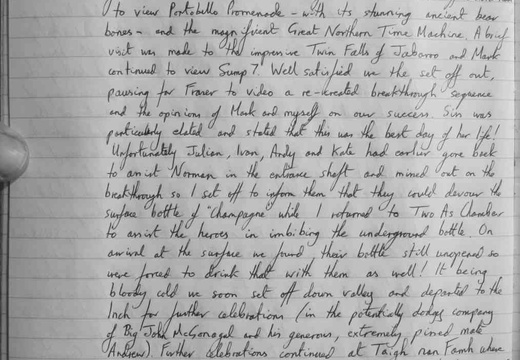 to view Portobello Promenade - with its stunning ancient bear
bones - and the magnificent Great Northern Time Machine. A brief
visit was made to the impressive Twin Falls of Jabarro and Mark
continued to view Sump 7. Well satisfied we the set off out,
pausing for Fraser to video a re-created breakthrough sequence
and the opinions of Mark and myself on our success. Siân was
particularly elated and stated that this was the best day of her life!
Unfortunately Julian, Ivan, Andy and Kate had earlier gone back
to assist Norman in the entrance shaft and missed out on the
breakthrough so I set off to inform them that they could devour the
surface bottle of "Champagne" while I returned to Two As Chamber
to assist the heroes in imbibing the underground bottle. On
arrival at the surface we found their bottle still unopened so
were forced to drink that with them as well! It being
bloody cold we soon set off down valley and departed to the
Inch for further celebrations (in the potentially dodgy company
of Big John McGonagal and his generous, extremely pissed mate
Andrew) Further celebrations continued at Taigh nan Famh where